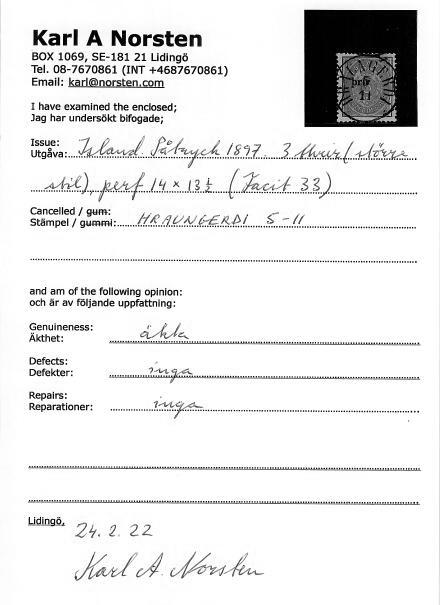 Karl A Norsten
BOX 1069, SE-181 21 Lidingö
Tel. 08-7670861 (INT +4687670861)
Email: karl@norsten.com
I have examined the enclosed;
Jag har undersökt bifogade;
Issue:
Utgåva: Island. Påtryck 1897 3 þrír (större
stil), perf 14 x 13½ (Facit 33)
Cancelled / gum:
Stämpel / gummi: HRAUNGERDI 5-11
and am of the following opinion:
och är av följande uppfattning:
Genuineness:
Äkthet: äkta
Defects:
Defekter: inga
Repairs:
Reparationer: inga
Lidingö,
24.2.22
Karl A. Norsten